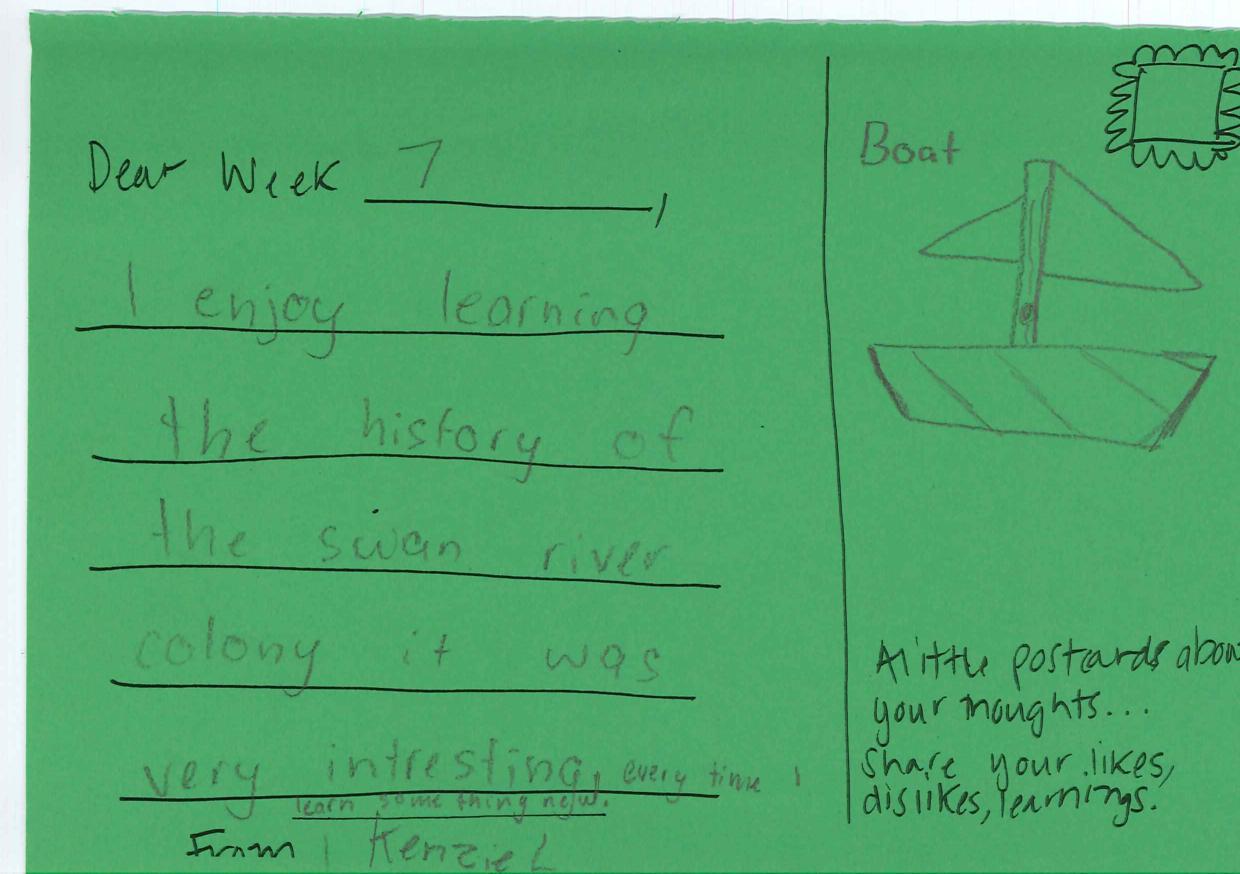 Dear Week 7,
I enjoy learning
the history of
the swan river
colony it was
very intresting, every time I
learn some thing new.
From Kenzie L
Boat
A little postcards abou
your thoughts...
Share your likes,
dislikes, learnings.